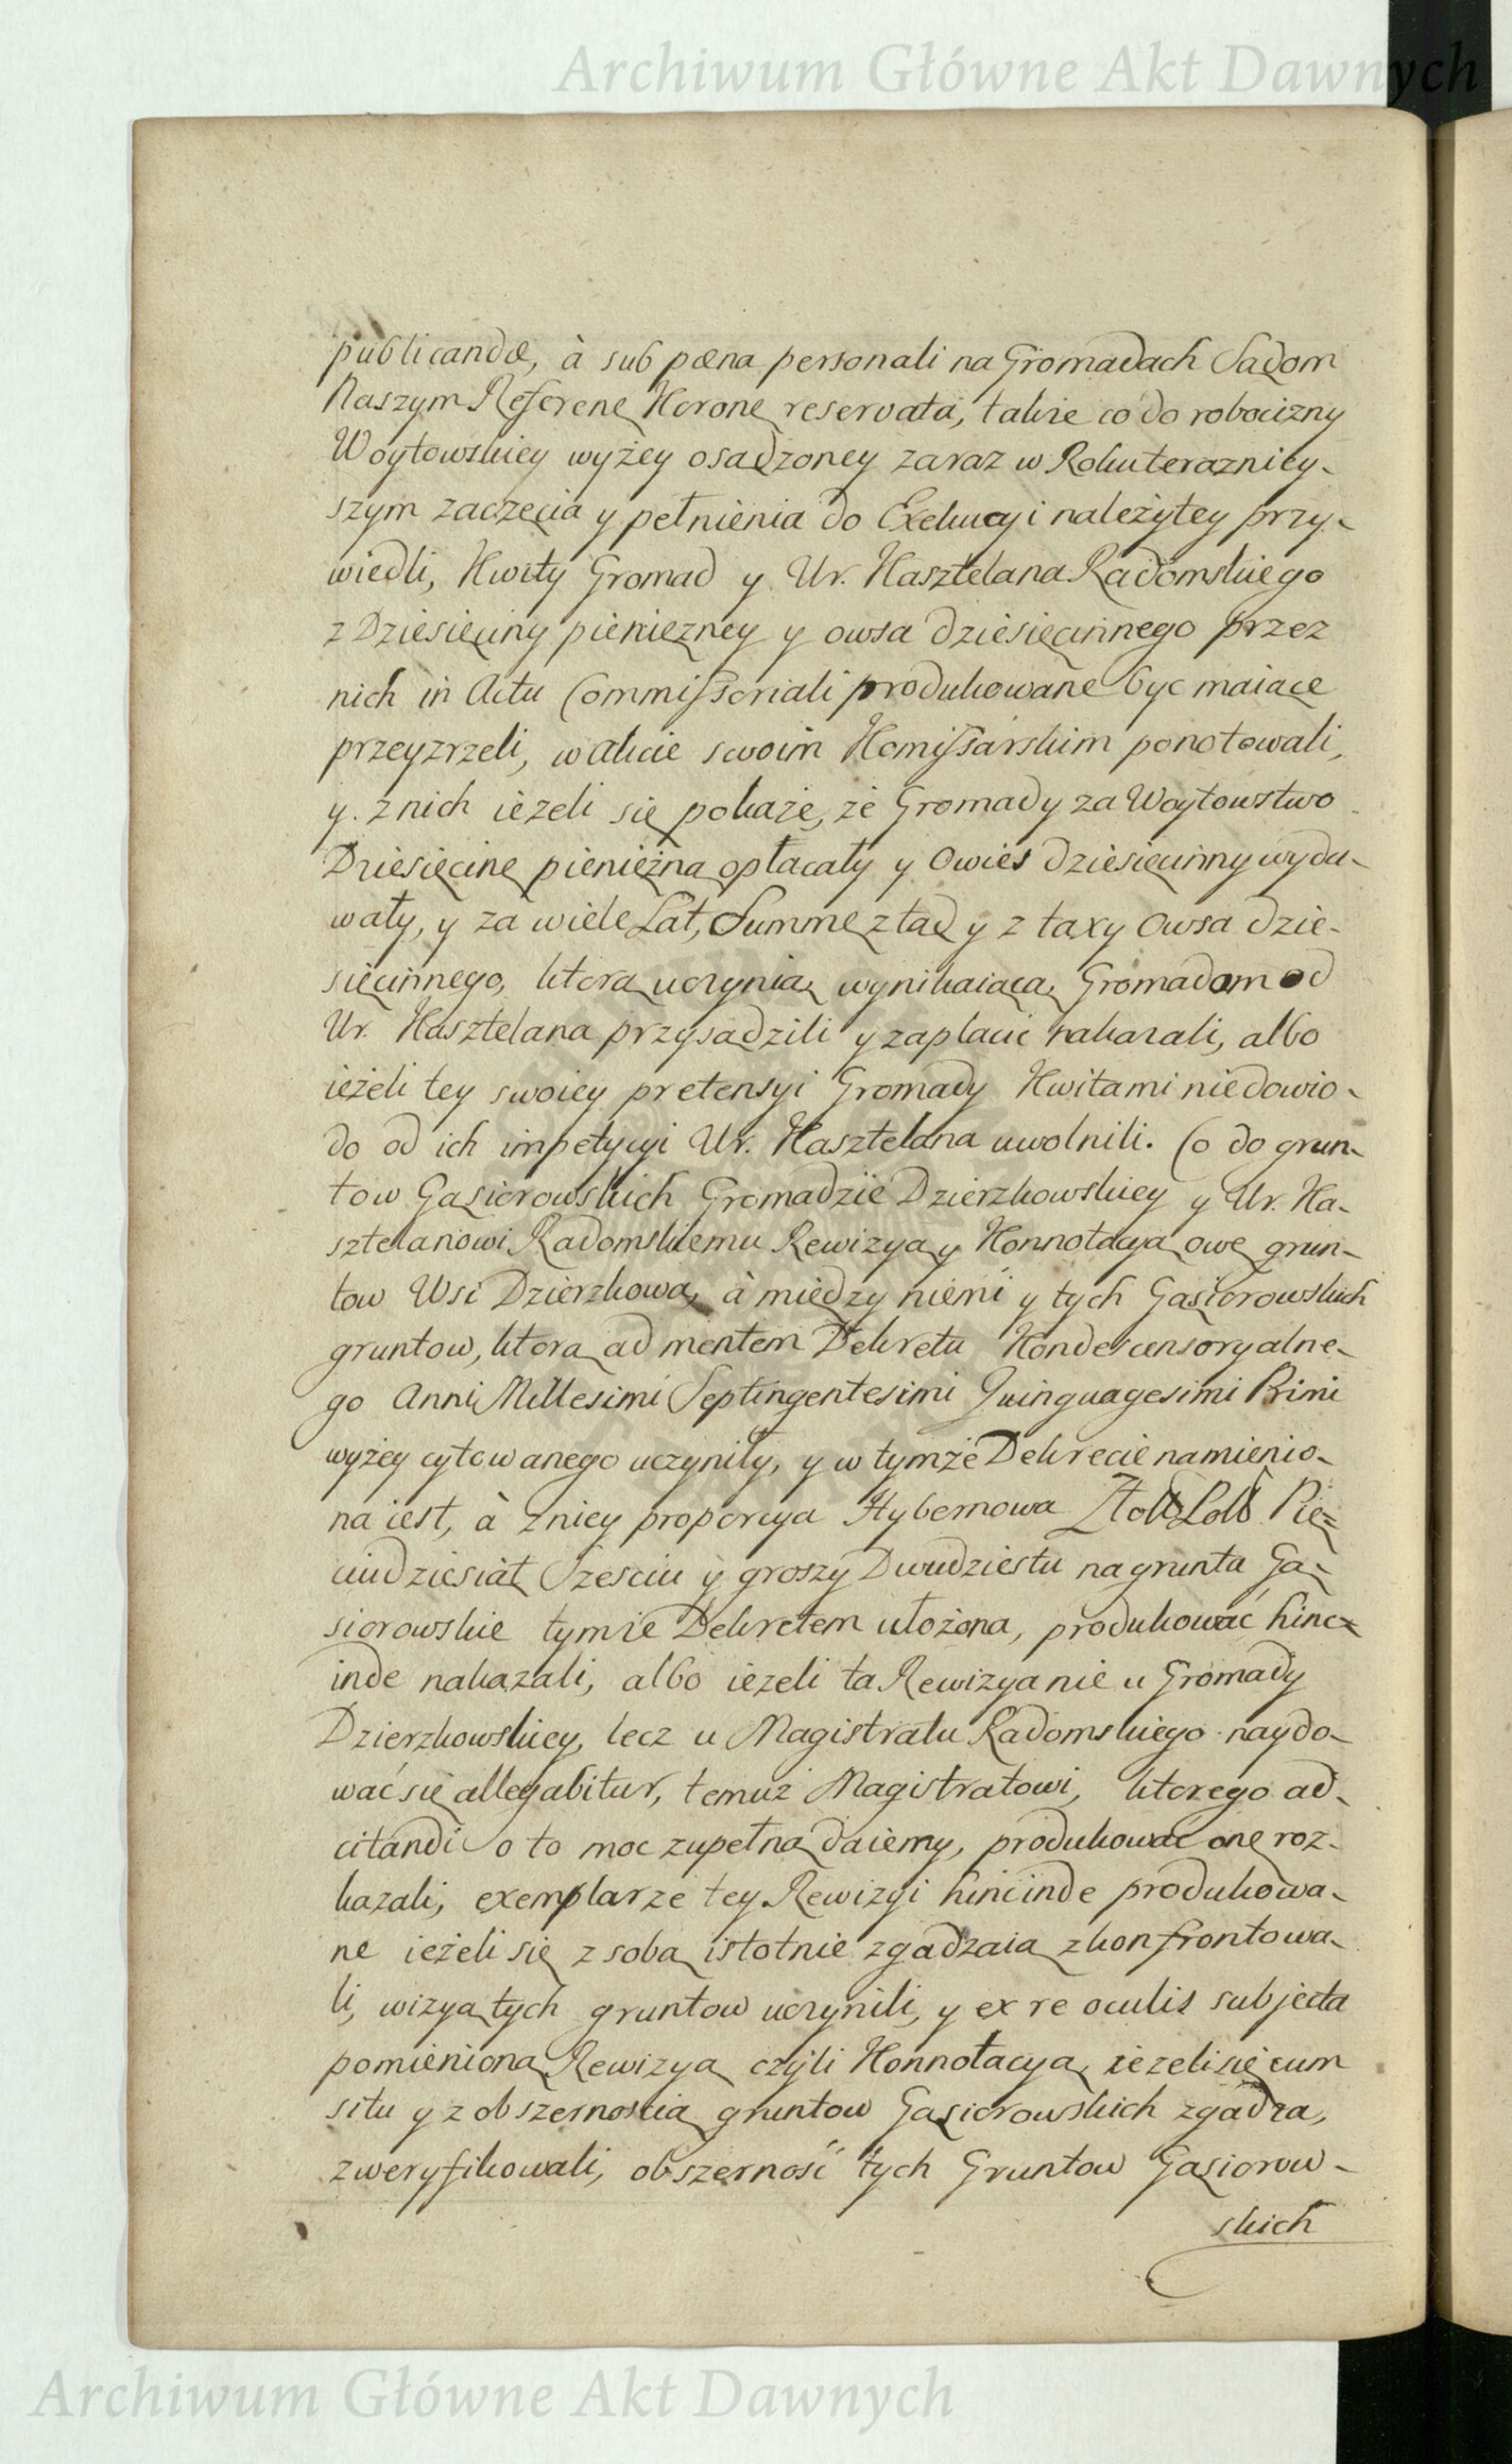 Archiwum Główne Akt Dawnych
publicandæ, à sub pæna personali na Gromadach Sądom
Naszym Referenę Koronę reservata, także co do robocizny
Woytowskiey wyżey osądzoney zaraz w Roku terazniey-
szym zaczęcia y pełnienia do Exekucyi należytey przy-
wiedli, Kwity Gromad y Ur. Kasztelana Radomskiego
z Dziesięciny pienięzney y owsa dziesięcinnego przez
nich in Actu Commissoriali produkowane byc maiące
przeyzrzeli, w akcie swoim Komissarskim ponotowali,
y z nich ieżeli się pokaże, że Gromady za Woytowstwo
Dziesięcinę pieniężną opłacały y Owies dziesięcinny wyda-
wały, y za wiele Lat, Summę ztąd y z taxy Owsa dzie-
sięcinnego, którą uczynią, wynikaiącą, Gromadom od
Ur. Kasztelana przysądzili y zapłacić nakazali, albo
ieżeli tey swoiey pretensyi Gromady Kwitami niedowio-
do od ich impetycyi Ur. Kasztelana uwolnili. Co do grun-
tow Gąsiorowskich Gromadzie Dzierzkowskiey y Ur. Ka-
sztelanowi Radomskiemu Rewizyą y Konnotacyą owę grun-
tow Wsi Dzierzkowa, à między niemi y tych Gąsiorowskich
gruntow, ktorą ad mentem Dekretu Kondescensoryalne-
go Anni Millesimi Septingentesimi Quinquagesimi Primi
wyżey cytowanego uczyniły, y w tymże Dekrecie namienio-
na iest, à z niey proporcya Hybernowa Złott Poll Pię=
ciudziesiąt Szesciu y groszy Dwudziestu na grunta Gą-
siorowskie tymże Dekretem ułożona, produkować hinc=
inde nakazali, albo ieżeli ta Rewizya nie u Gromady
Dzierzkowskiey, lecz u Magistratu Radomskiego naydo-
wać się allegabitur, temuż Magistratowi, ktorego ad-
citandi o to moc zupełną daiemy, produkować onę roz-
kazali, exemplarze tey Rewizyi hincinde produkowa-
ne ieżeli się z sobą istotnie zgadzaią zkonfrontowa-
li, wizyą tych gruntow uczynili, y ex re oculis subjecta
pomienioną Rewizyą czyli Konnotacyą, ieżeli się cum
situ y z obszernoscią gruntow Gąsiorowskich zgadza,
zweryfikowali, obszerność tych Gruntow Gąsiorow-
skich
Archiwum Główne Akt Dawnych